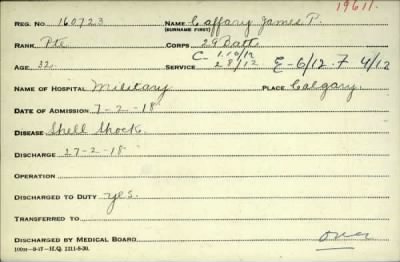 19611.
REG. NO. 160723 NAME Caffary James P.
(SURNAME FIRST)
RANK Pte CORPS 29 Batt
AGE 32 SERVICE C- 1 10/12 28/12 E-6/12. F 4/12
NAME OF HOSPITAL Military PLACE Calgary.
DATE OF ADMISSION 7-2-18
DISEASE Shell Shock
DISCHARGE 27-2-18
OPERATION
DISCHARGED TO DUTY yes.
TRANSFERRED TO
DISCHARGED BY MEDICAL BOARD over
100M-9-17-H.Q. 1211-8-30.